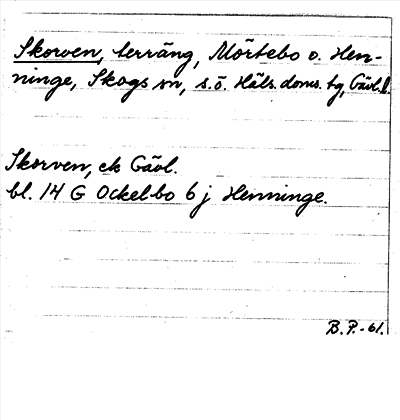 Skorven, terräng, Mörtebo o. Hen-
ninge, Skogs sn, s.ö. Häls. doms. tg, Gävl. l
Skorven, ek Gävl.
bl. 14 G Ockelbo 6 j Henninge.
B.P.-61.